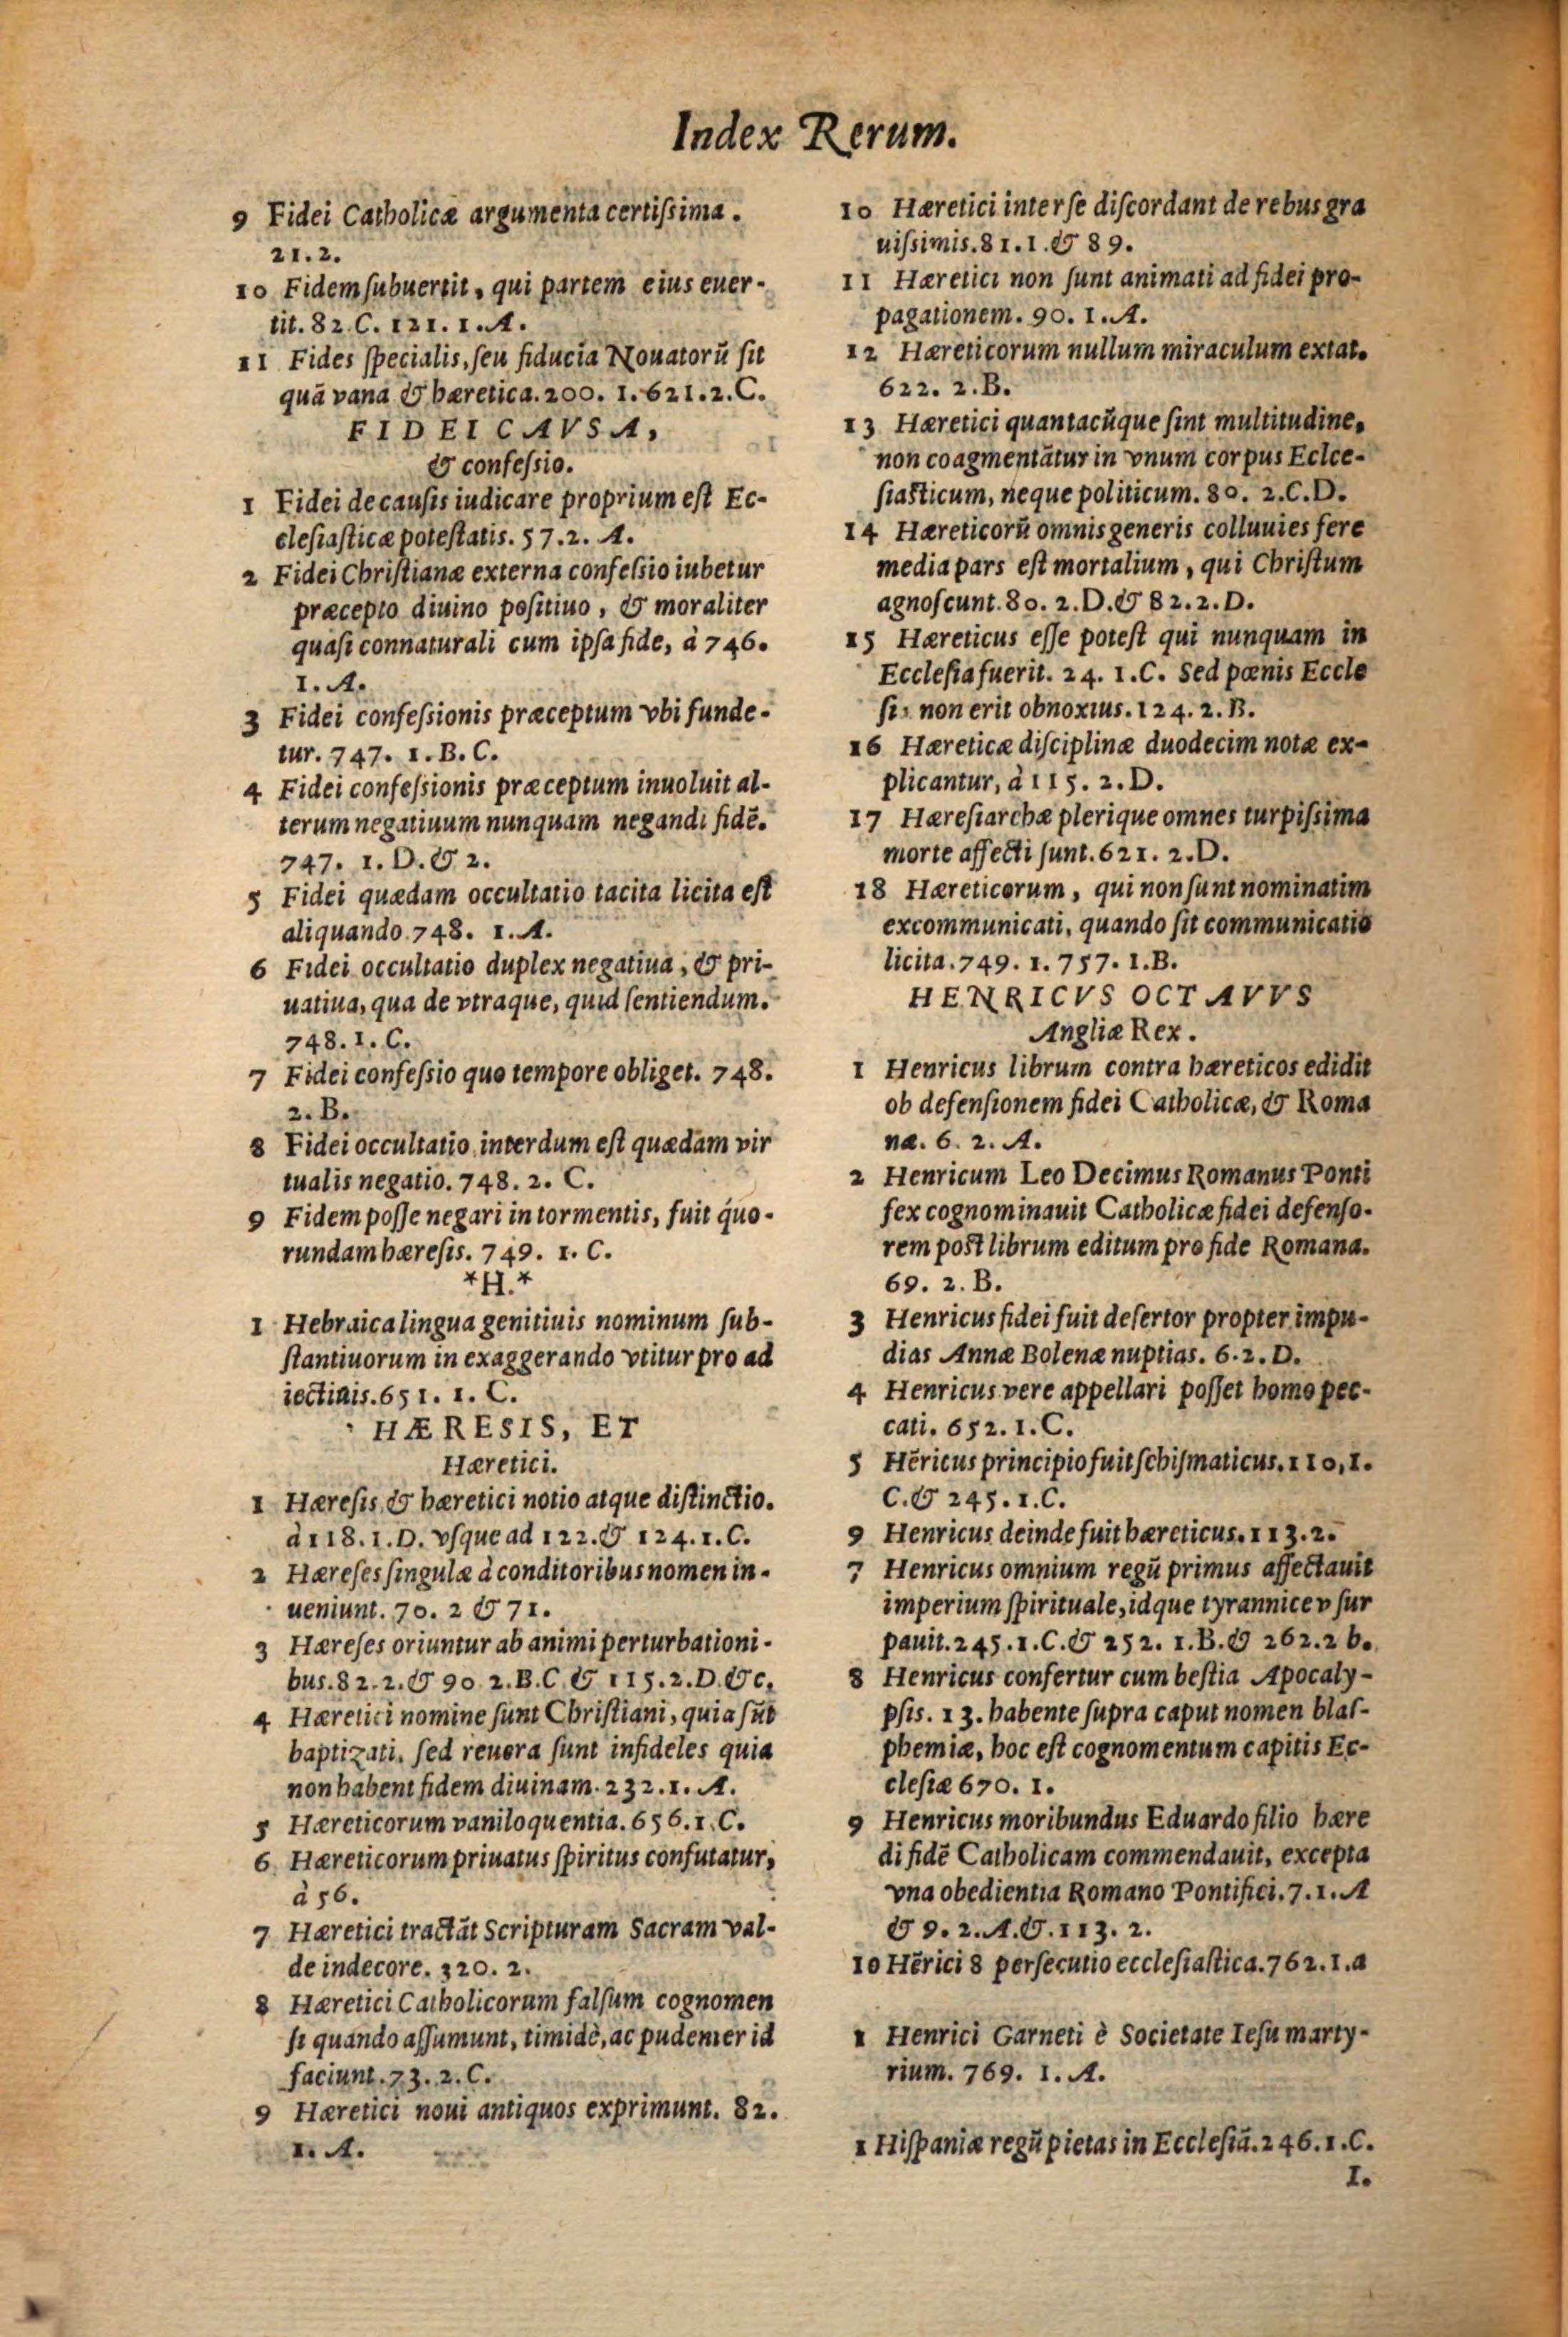 Index Rerum.
9 Fidei Catholicæ argumenta certiſsima.
21.2.
10 Fidem ſubuertit, qui partem eius euer-
tit. 82.C. 121. 1.A.
11 Fides ſpecialis, ſeu fiducia Nouatorū ſit
quā vana & hæretica. 200. 1. 621.2.C.
FIDEI CAVSA,
& confeſsio.
1 Fidei de cauſis iudicare proprium eſt Ec-
cleſiaſticæ poteſtatis. 57.2. A.
2 Fidei Chriſtianæ externa confeſsio iubetur
præcepto diuino poſitiuo, & moraliter
quaſi connaturali cum ipſa fide, à 746.
1. A.
3 Fidei confeſsionis præceptum vbi funde-
tur. 747. 1. B. C.
4 Fidei confeſsionis præceptum inuoluit al-
terum negatiuum nunquam negandi fidē.
747. 1. D. & 2.
5 Fidei quædam occultatio tacita licita eſt
aliquando. 748. 1. A.
6 Fidei occultatio duplex negatiua, & pri-
uatiua, qua de vtraque, quid ſentiendum.
748. 1. C.
7 Fidei confeſsio quo tempore obliget. 748.
2. B.
8 Fidei occultatio interdum eſt quædam vir
tualis negatio. 748. 2. C.
9 Fidem poſſe negari in tormentis, fuit quo-
rundam hæreſis. 749. 1. C.
*H.*
1 Hebraica lingua genitiuis nominum ſub-
ſtantiuorum in exaggerando vtitur pro ad
iectiuis. 651. 1. C.
HÆRESIS, ET
Hæretici.
1 Hæreſis & hæretici notio atque diſtinctio.
à 118. 1. D. vſque ad 122. & 124. 1. C.
2 Hæreſes ſingulæ à conditoribus nomen in-
ueniunt. 70. 2 & 71.
3 Hæreſes oriuntur ab animi perturbationi-
bus. 82. 2. & 90 2. B. C & 115. 2. D. &c.
4 Hæretici nomine ſunt Chriſtiani, quia ſūt
baptizati, ſed reuera ſunt infideles quia
non habent fidem diuinam. 232. 1. A.
5 Hæreticorum vaniloquentia. 656. 1. C.
6 Hæreticorum priuatus ſpiritus confutatur,
à 56.
7 Hæretici tractāt Scripturam Sacram val-
de indecore. 320. 2.
8 Hæretici Catholicorum falſum cognomen
ſi quando aſſumunt, timidè, ac pudenter id
faciunt. 73. 2. C.
9 Hæretici noui antiquos exprimunt. 82.
1. A.
10 Hæretici inter ſe diſcordant de rebus gra
uiſsimis. 81. 1. & 89.
11 Hæretici non ſunt animati ad fidei pro-
pagationem. 90. 1. A.
12 Hæreticorum nullum miraculum extat.
622. 2. B.
13 Hæretici quantacūque ſint multitudine,
non coagmentātur in vnum corpus Eclce-
ſiaſticum, neque politicum. 80. 2. C. D.
14 Hæreticorū omnis generis colluuies fere
media pars eſt mortalium, qui Chriſtum
agnoſcunt. 80. 2. D. & 82. 2. D.
15 Hæreticus eſſe poteſt qui nunquam in
Eccleſia fuerit. 24. 1. C. Sed pœnis Eccle
non erit obnoxius. 124. 2. B.
16 Hæreticæ diſciplinæ duodecim notæ ex-
plicantur, à 115. 2. D.
17 Hæreſiarchæ plerique omnes turpiſsima
morte affecti ſunt. 621. 2. D.
18 Hæreticorum, qui non ſunt nominatim
excommunicati, quando ſit communicatio
licita. 749. 1. 757. 1. B.
HENRICVS OCTAVVS
Angliæ Rex.
1 Henricus librum contra hæreticos edidit
ob defenſionem fidei Catholicæ, & Roma
næ. 6. 2. A.
2 Henricum Leo Decimus Romanus Ponti
fex cognominauit Catholicæ fidei defenſo-
rem poſt librum editum pro fide Romana.
69. 2. B.
3 Henricus fidei fuit deſertor propter impu-
dias Annæ Bolenæ nuptias. 6. 2. D.
4 Henricus vere appellari poſſet homo pec-
cati. 652. 1. C.
5 Hēricus principio fuit ſchiſmaticus. 110, 1.
C. & 245. 1. C.
9 Henricus deinde fuit hæreticus. 113. 2.
7 Henricus omnium regū primus affectauit
imperium ſpirituale, idque tyrannice v ſur
pauit. 245. 1. C. & 252. 1. B. & 262. 2 b.
8 Henricus confertur cum beſtia Apocaly-
pſis. 13. habente ſupra caput nomen blaſ-
phemiæ, hoc eſt cognomentum capitis Ec-
cleſiæ 670. 1.
9 Henricus moribundus Eduardo filio hære
di fidē Catholicam commendauit, excepta
vna obedientia Romano Pontifici. 7. 1. A
& 9. 2. A. &. 113. 2.
10 Hērici 8 perſecutio eccleſiaſtica. 762. 1. a
1 Henrici Garneti è Societate Ieſu marty-
rium. 769. 1. A.
1 Hiſpaniæ regū pietas in Eccleſiā. 246. 1. C.
I.